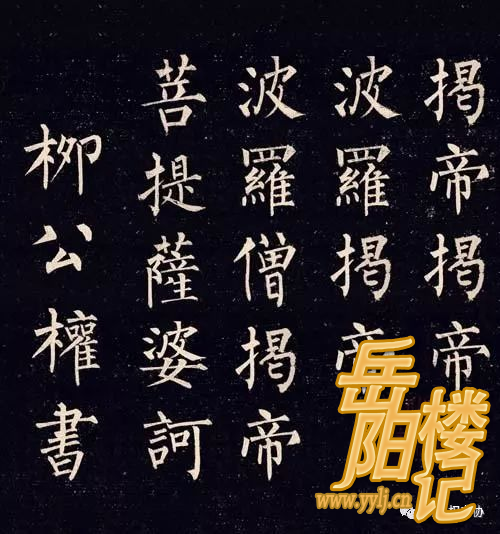 揭帝揭帝
波羅揭帝
波羅僧揭帝
菩提薩婆訶
柳公權書
岳阳楼记
www.yylj.cn